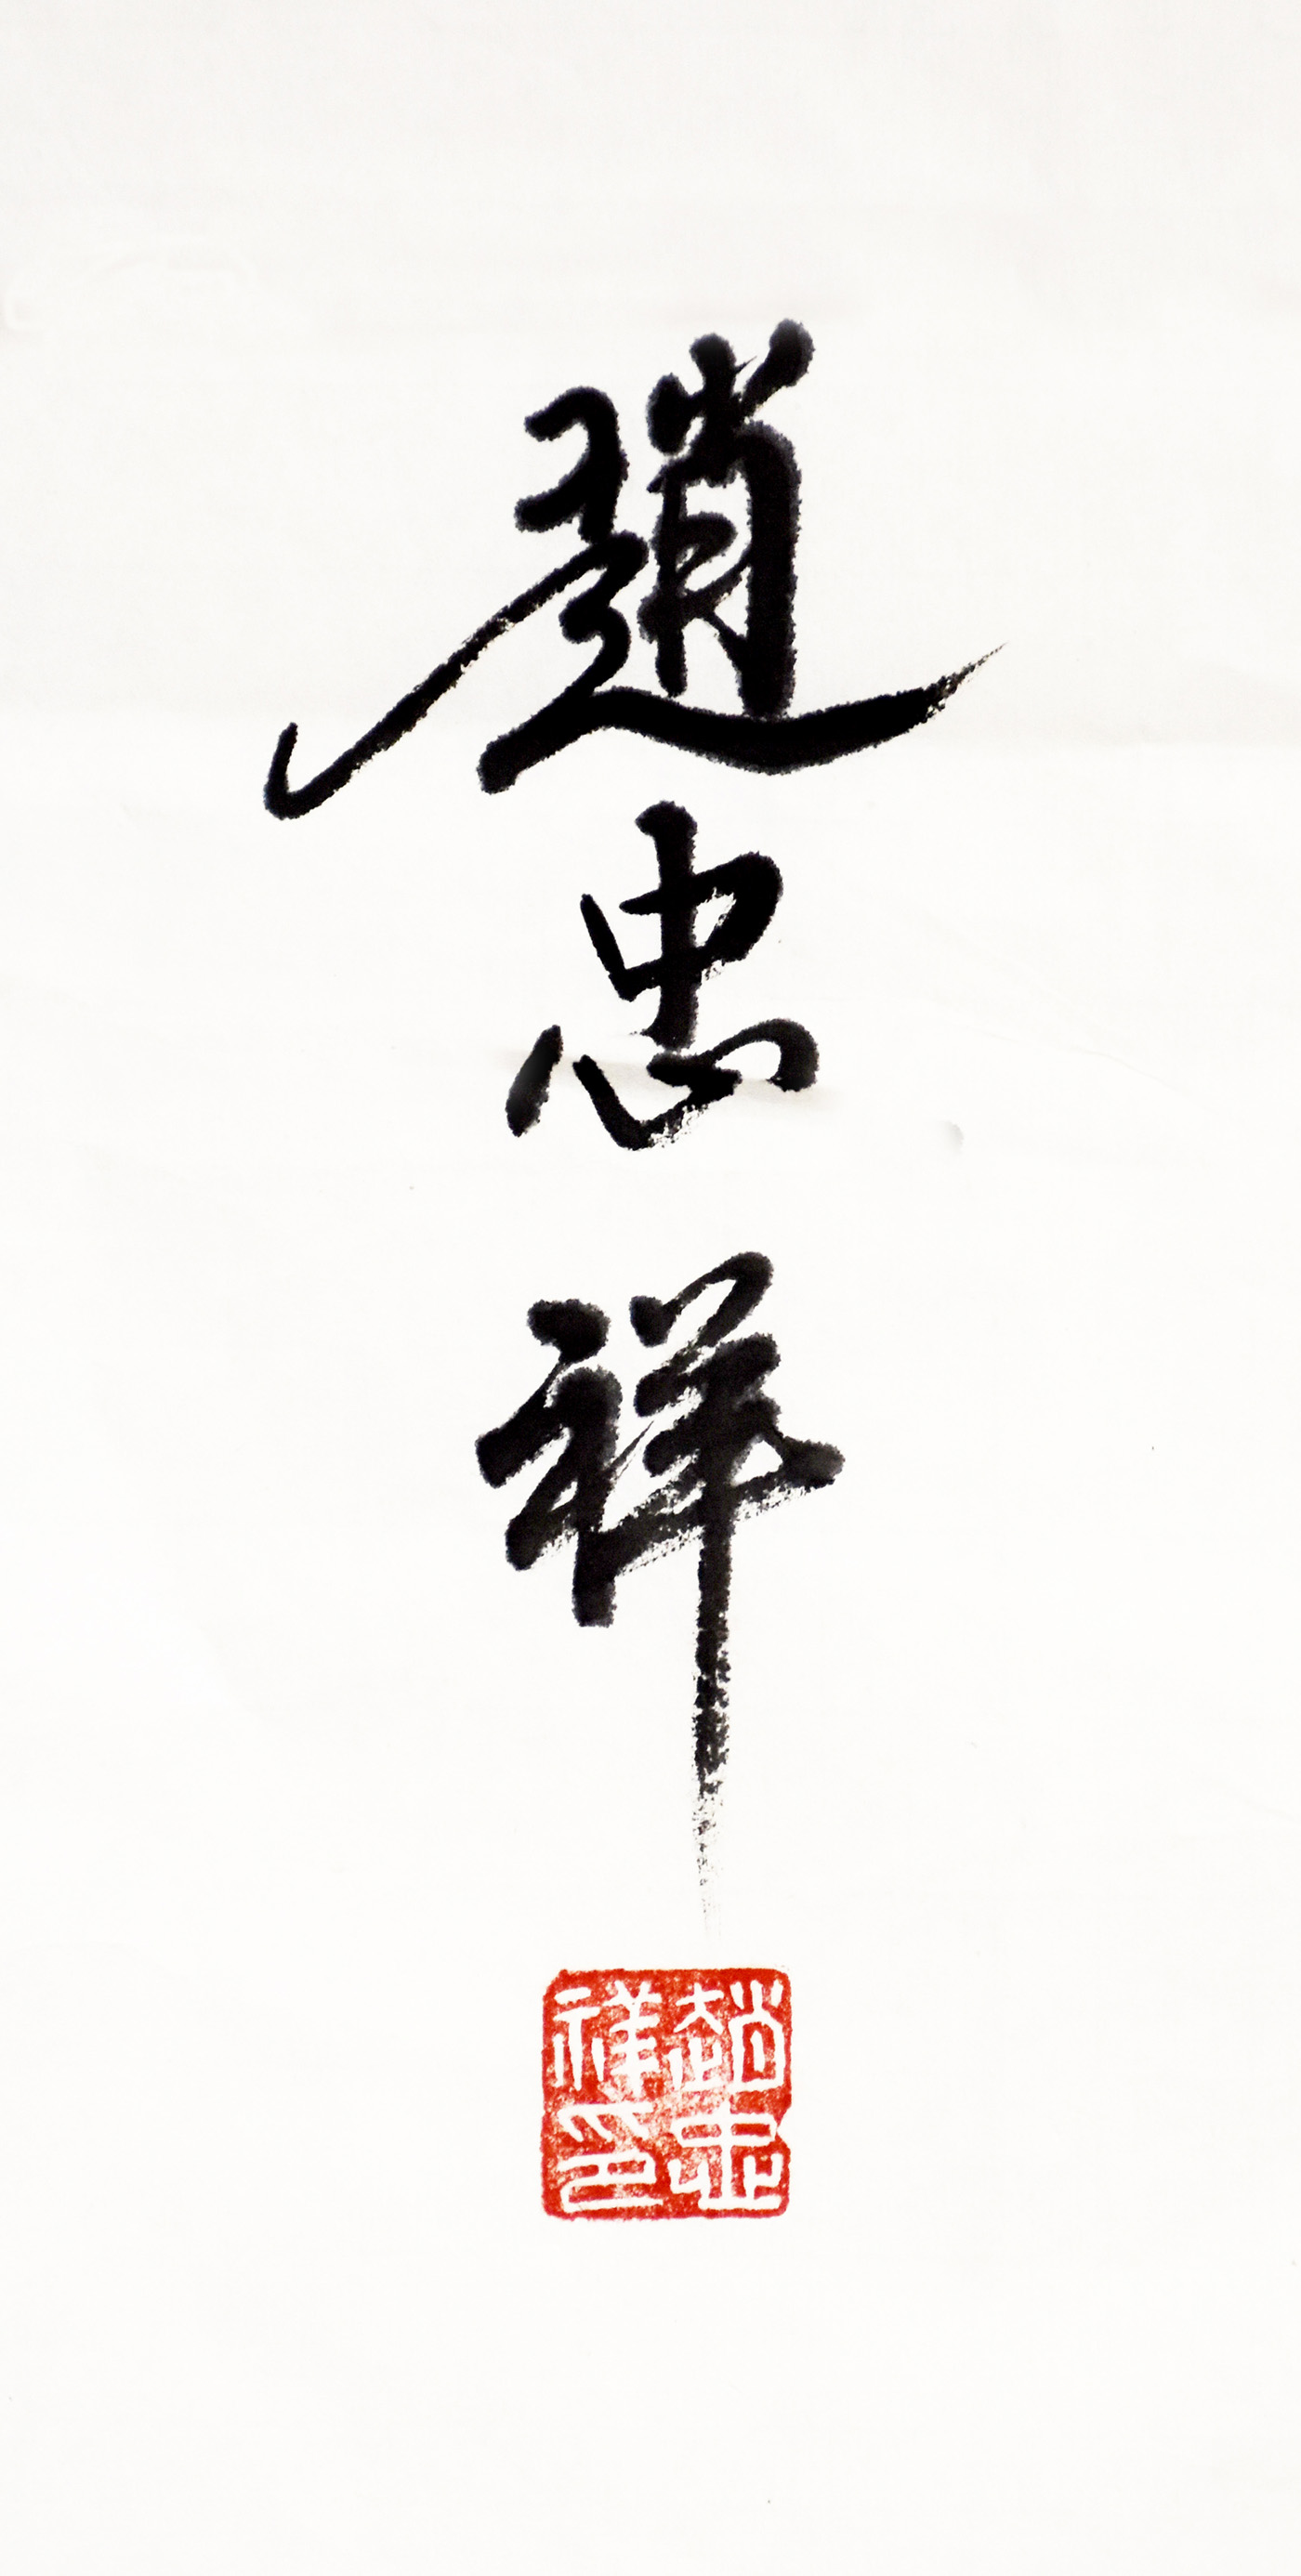 趙忠祥
趙忠
祥印